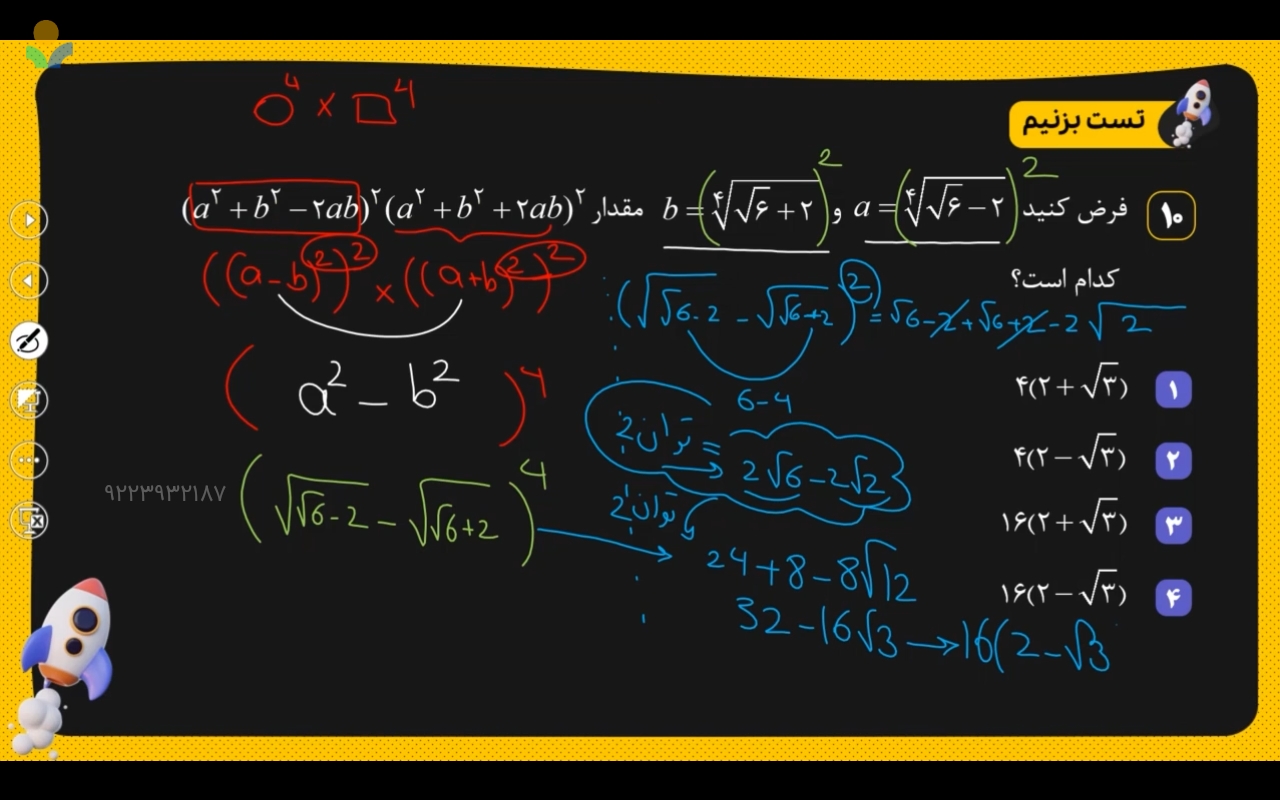 ○⁴ × □⁴
تست بزنیم
۱۰ فرض کنید a = (∜(√۶ − ۲))² و b = (∜(√۶ + ۲))² مقدار (a² + b² − ۲ab)²(a² + b² + ۲ab)²
کدام است؟
((a-b)²)² × ((a+b)²)²
(√(√6-2) - √(√6+2))² = √6-2+√6+2-2√2
6-4
(a² - b²)⁴
توان 2 = 2√6-2√2
(√(√6-2) - √(√6+2))⁴
با توان 2
24+8-8√12
32-16√3 → 16(2-√3
۱ ۴(۲ + √۳)
۲ ۴(۲ − √۳)
۳ ۱۶(۲ + √۳)
۴ ۱۶(۲ − √۳)
۹۲۲۳۹۳۲۱۸۷